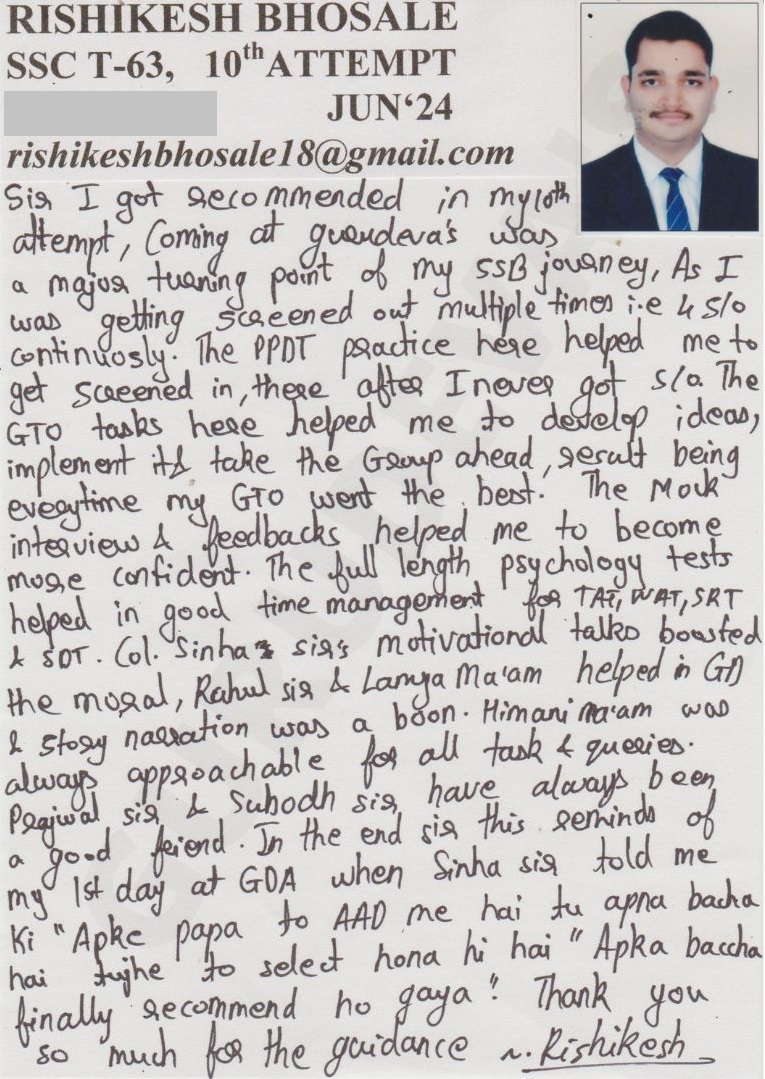 RISHIKESH BHOSALE
SSC T-63, 10th ATTEMPT
JUN'24
rishikeshbhosale18@gmail.com
Sir I got recommended in my 10th
attempt, Coming at gurudeva's was
a major turning point of my SSB journey, As I
was getting screened out multiple times i.e 4 s/o
continuosly. The PPDT practice here helped me to
get screened in, there after I never got s/o. The
GTO tasks here helped me to develop ideas,
implement it & take the Group ahead, result being
everytime my GTO went the best. The Mock
interview & feedbacks helped me to become
more confident. The full length psychology tests
helped in good time management for TAT, WAT, SRT
& SDT. Col. Sinha sir's motivational talks boosted
the moral, Rahul sir & Lamya Ma'am helped in GD
& story narration was a boon. Himani ma'am was
always approachable for all task & queries.
Prajwal sir & Subodh sir have always been
a good friend. In the end sir this reminds of
my 1st day at GDA when Sinha sir told me
ki "Apke papa to AAD me hai tu apna bacha
hai tujhe to select hona hi hai" Apka baccha
finally recommend ho gaya". Thank you
so much for the guidance ~. Rishikesh